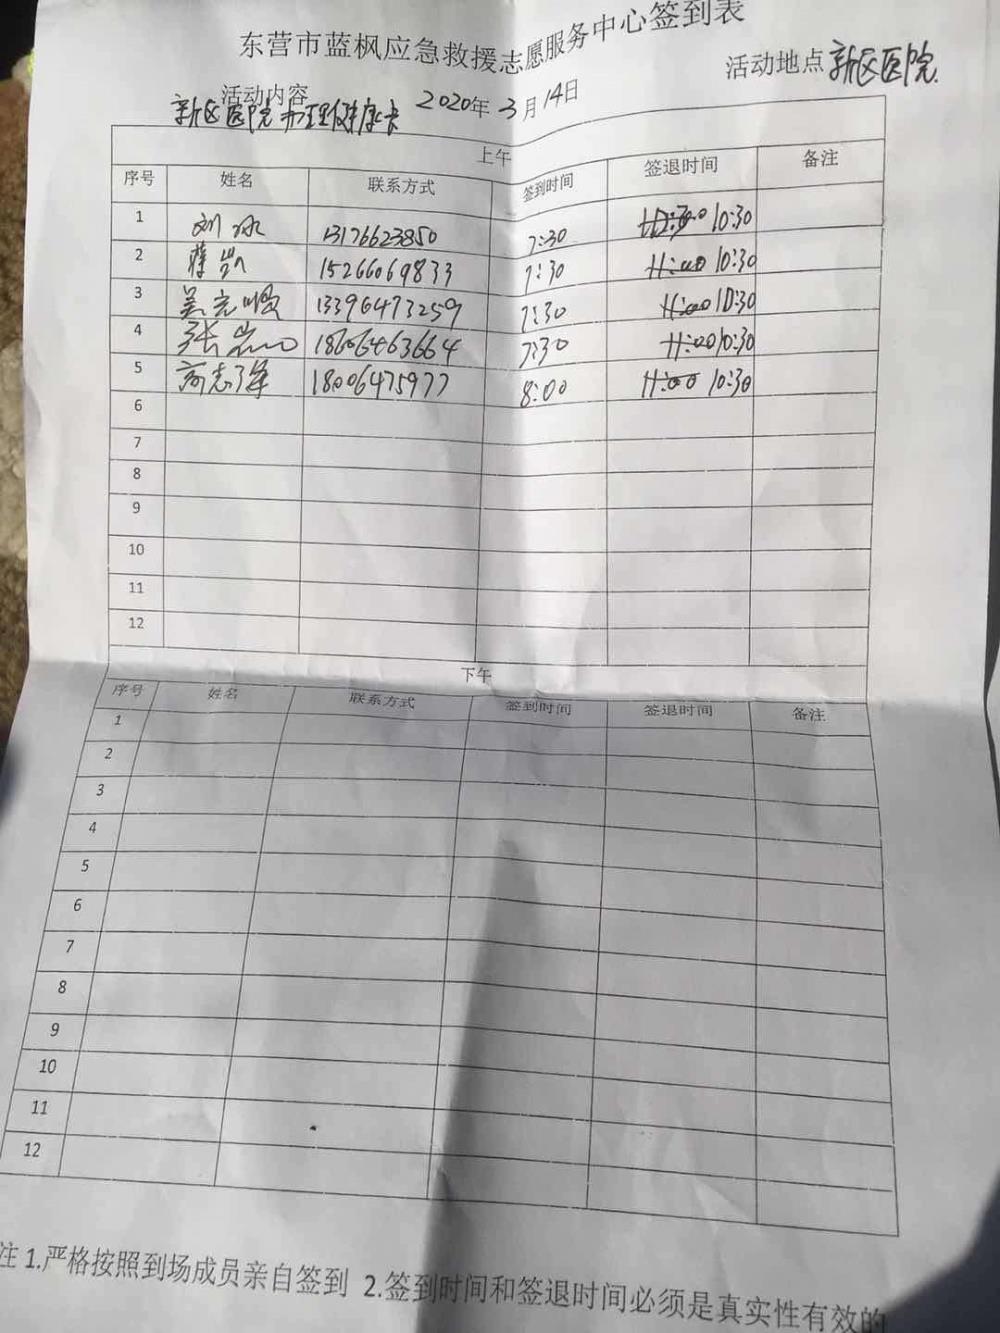 东营市蓝枫应急救援志愿服务中心签到表
活动地点 新区医院
活动内容 2020年 3月 14日
新区医院办理健康卡
上午
序号 姓名 联系方式 签到时间 签退时间 备注
1 刘冰 13176623850 7:30 10:30
2 蒋凯 15266069833 7:30 11:00 10:30
3 13396473259 7:30 11:00 10:30
4 张 18606463664 7:30 11:00 10:30
5 18006475977 8:00 11:00 10:30
6
7
8
9
10
11
12
下午
序号 姓名 联系方式 签到时间 签退时间 备注
1
2
3
4
5
6
7
8
9
10
11
12
注 1.严格按照到场成员亲自签到 2.签到时间和签退时间必须是真实性有效的